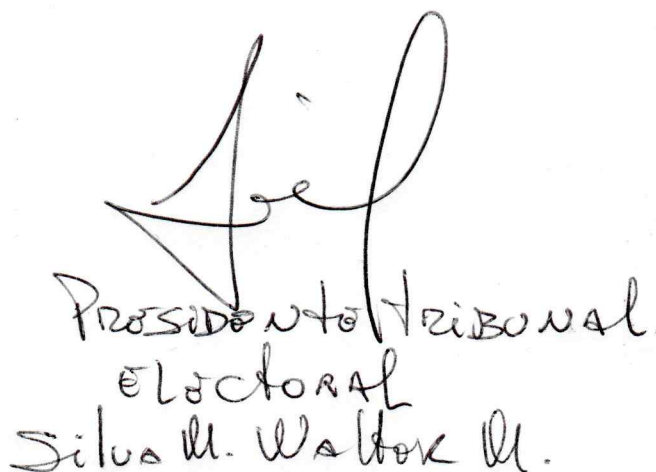 PRESIDENTE TRIBUNAL
ELECTORAL
Silva M. Walter M.